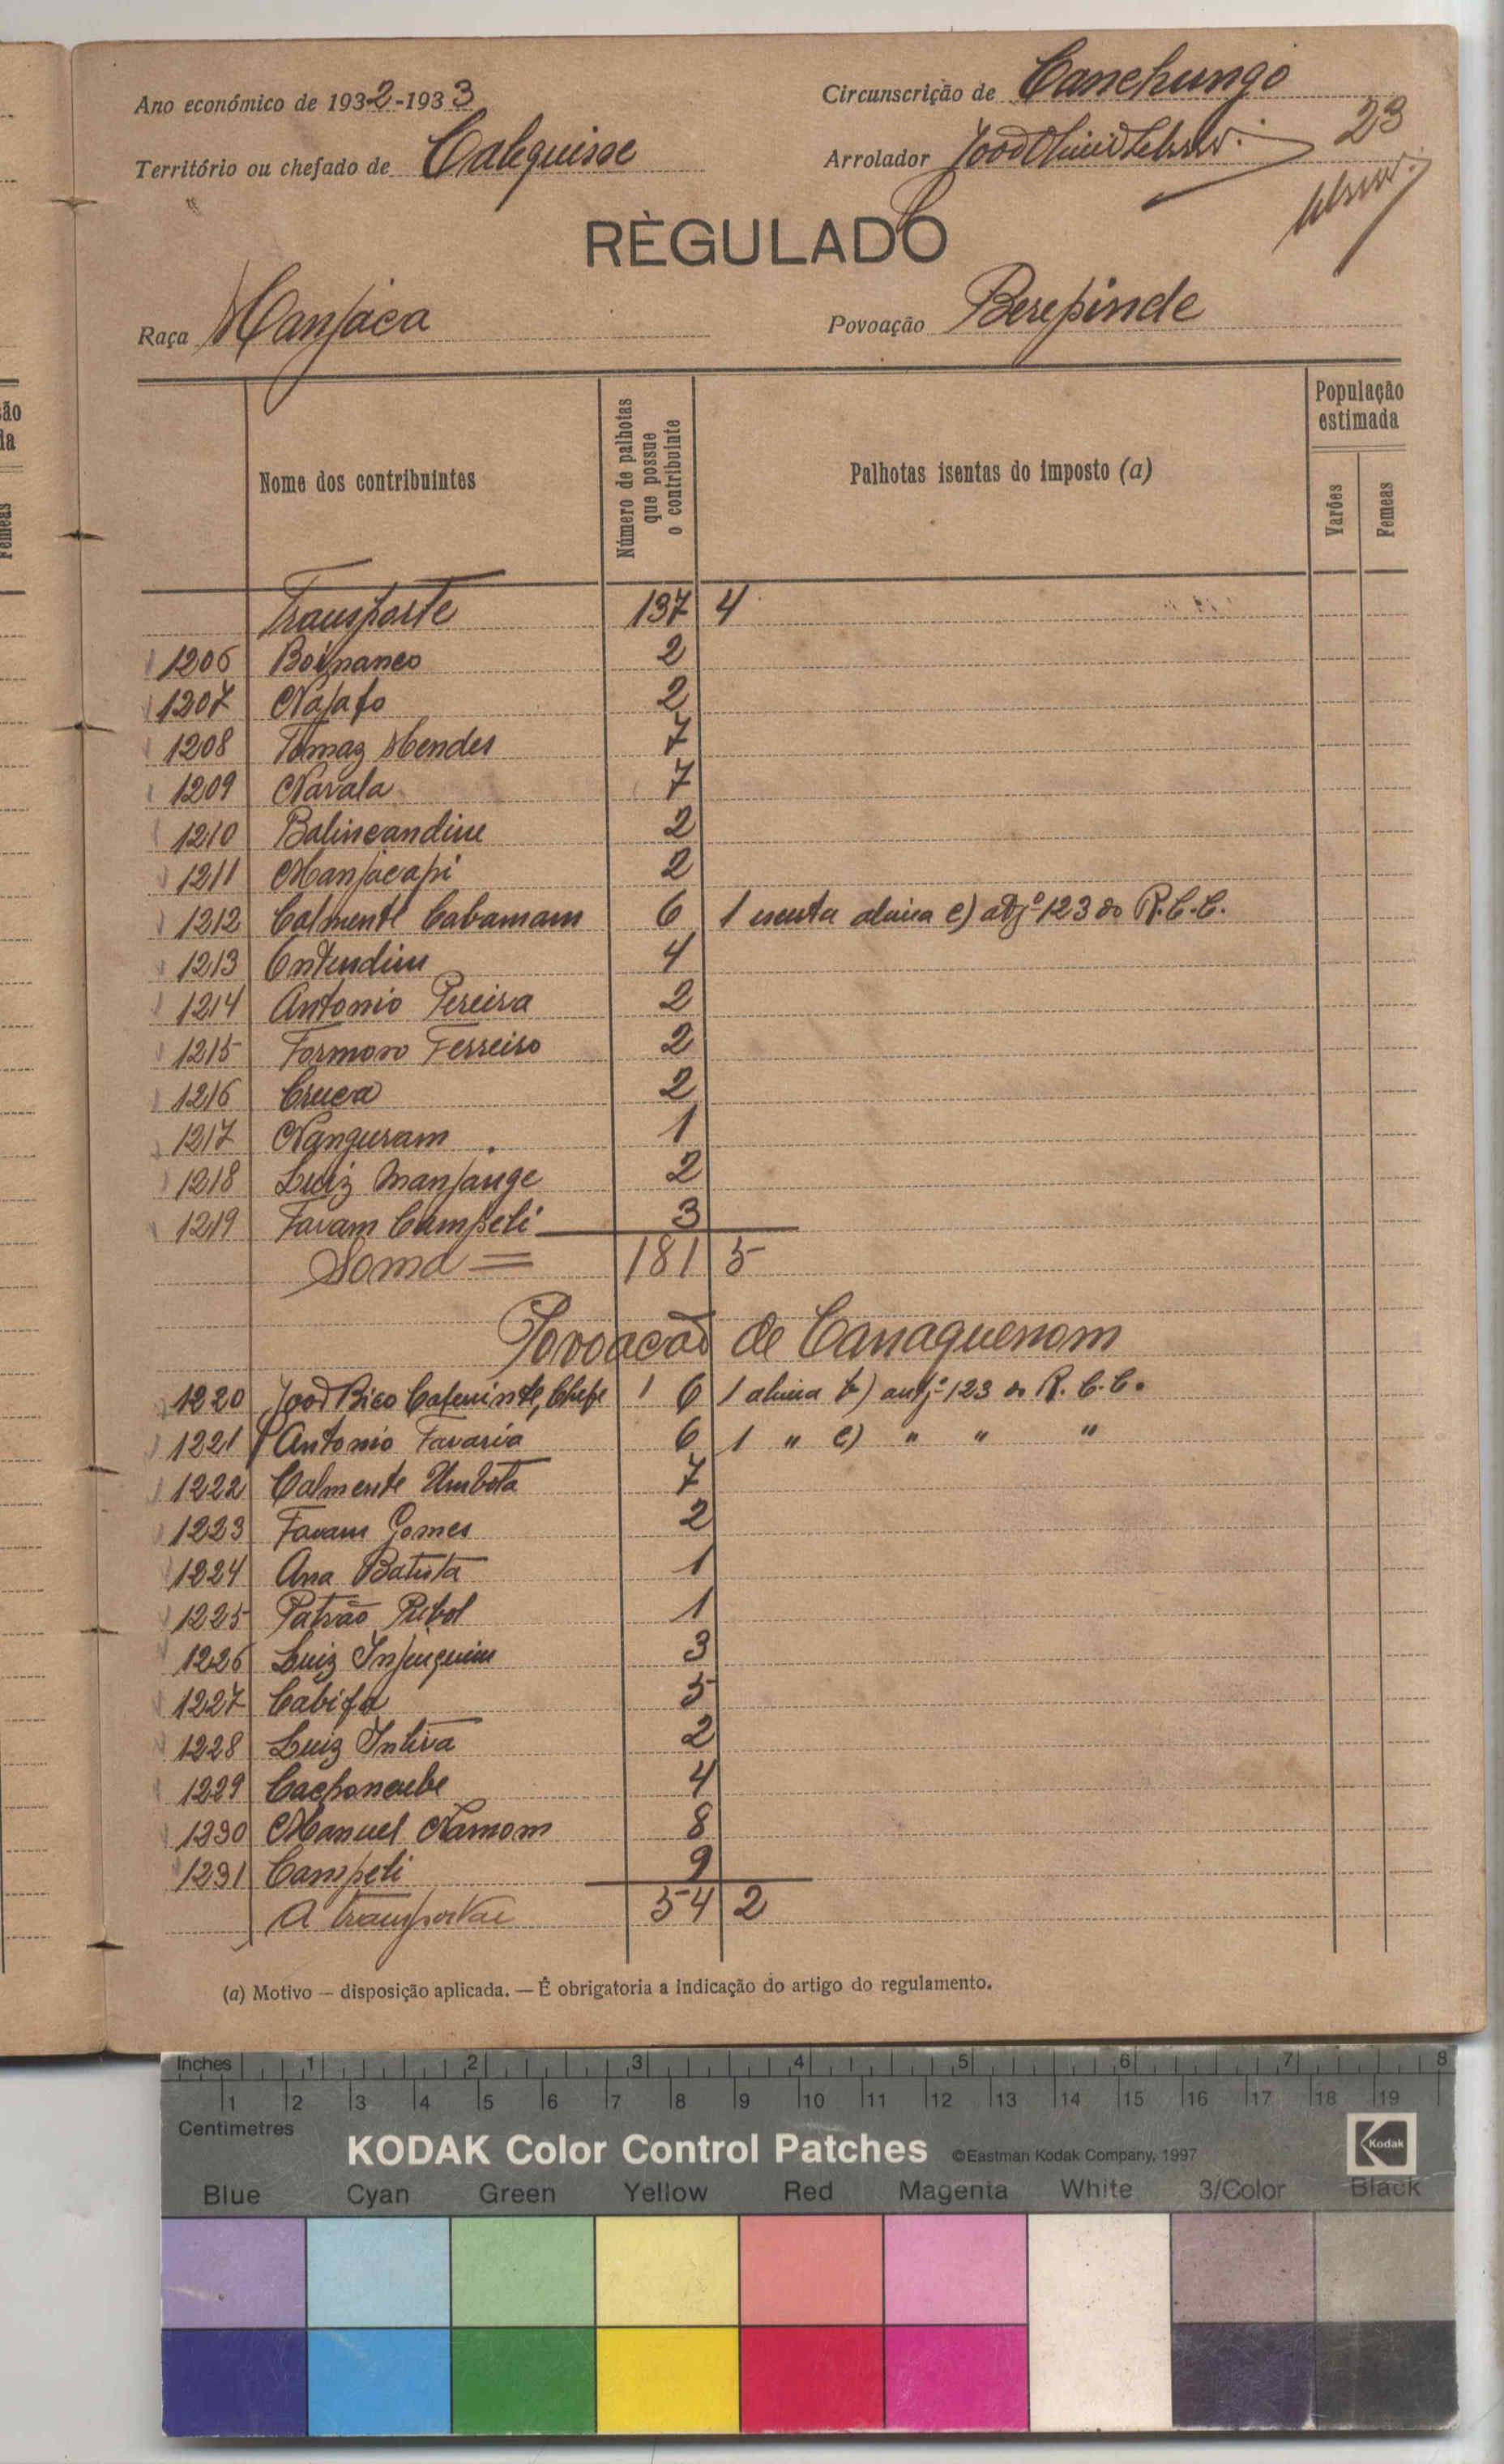 Ano económico de 1932-1933
Circunscrição de Canchungo
Território ou chefado de Calequisse
Arrolador
23
RÈGULADO
Raça Manjaca
Povoação Berepinde
Nome dos contribuintes
Número de palhotas que possue o contribuinte
Palhotas isentas do imposto (a)
População estimada
Varões
Femeas
Transporte 137 4
1206 Boiznanco 2
1207 Najafo 2
1208 Tomaz Mendes 7
1209 Navala 7
1210 Balincandim 2
1211 Manjacapi 2
1212 Calmente Cabamam 6 1 isenta alinea c) artjº 123 do R.C.C.
1213 Entendim 4
1214 Antonio Pereira 2
1215 Formoso Ferreiro 2
1216 Cruca 2
1217 Nanguram 1
1218 Luiz Manjange 2
1219 Favam Campeli 3
Soma = 181 5
Povoacão de Canaquenom
1220 João Bico Cafeninte, Chefe 1 6 1 alinea b) artjº 123 do R.C.C.
1221 Antonio Favaria 6 1 " c) " " "
1222 Calmente Umbota 7
1223 Favam Gomes 2
1224 Ana Batista 1
1225 Patrão Pribol 1
1226 Luiz Injenquim 3
1227 Cabifa 5
1228 Luiz Intiva 2
1229 Cachoncube 4
1230 Manuel Namom 8
1231 Campeli 9
A transportar 54 2
(a) Motivo — disposição aplicada. — É obrigatoria a indicação do artigo do regulamento.
Inches 1 2 3 4 5 6 7 8
1 2 3 4 5 6 7 8 9 10 11 12 13 14 15 16 17 18 19
Centimetres
KODAK Color Control Patches ©Eastman Kodak Company, 1997 Kodak
Blue Cyan Green Yellow Red Magenta White 3/Color Black